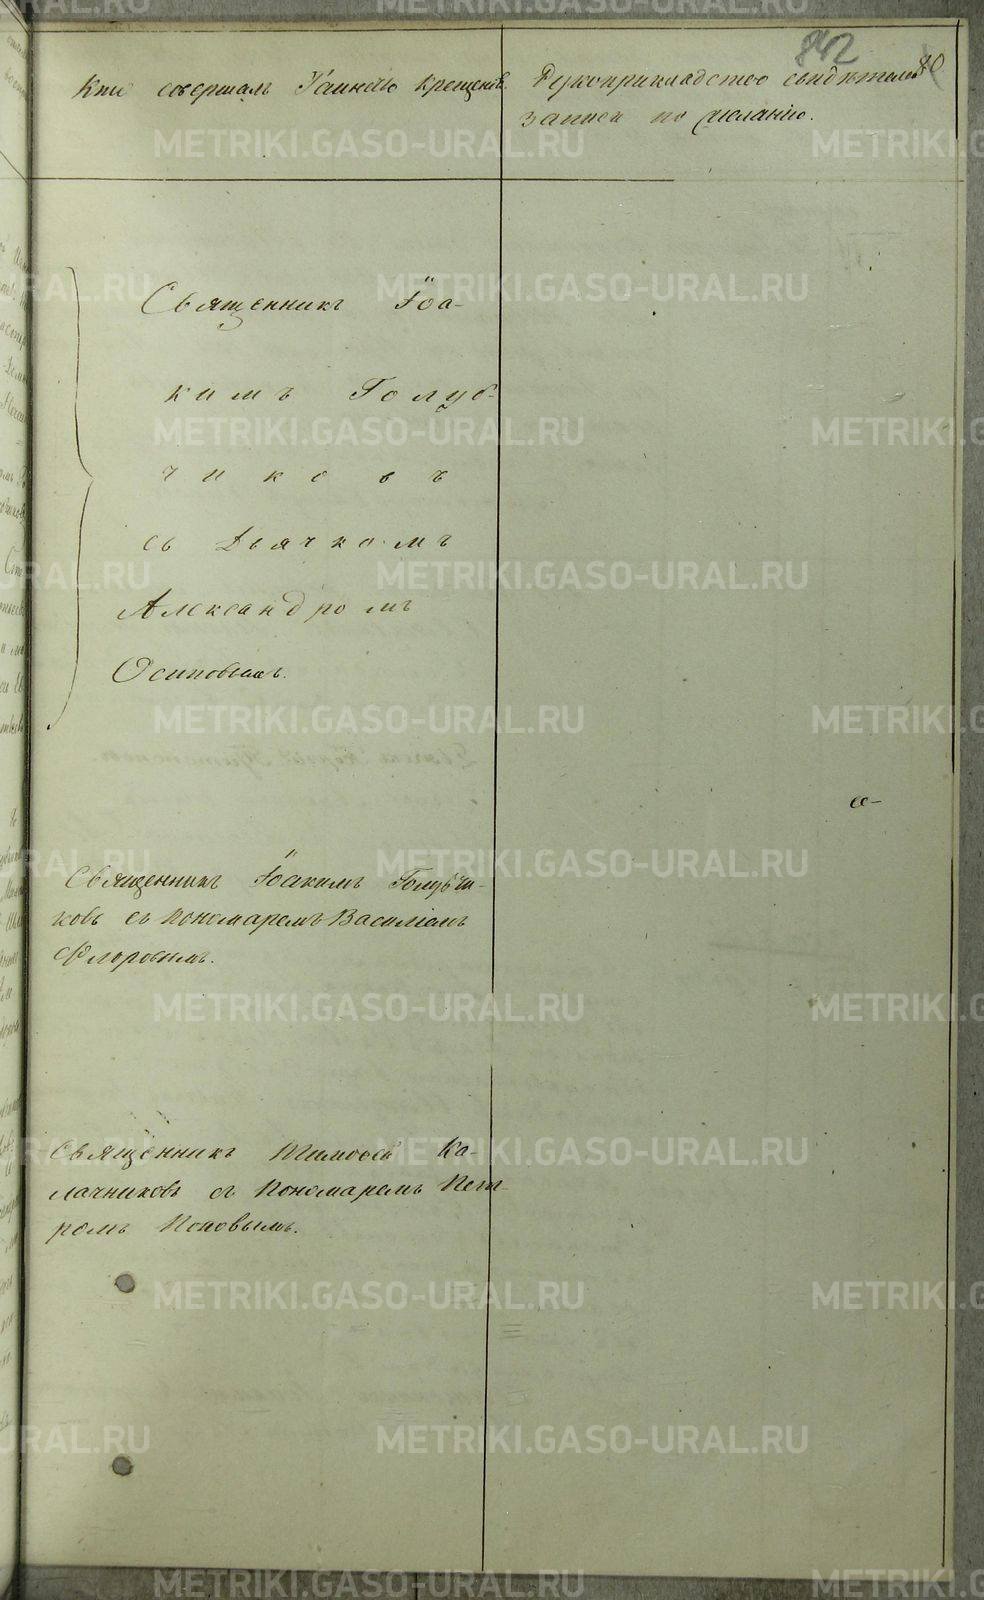 842
80
Кто совершалъ Таинство крещенiя.
Рукоприкладство свидѣтелей
записи по желанiю.
Священникъ Iоа-
кимъ Голуб-
чиковъ
съ Дьячкомъ
Александромъ
Осиповымъ.
Священникъ Iоакимъ Голубчи-
ковъ съ Пономаремъ Василiемъ
Флоровымъ.
Священникъ Тимоѳей Ка-
лачниковъ съ Пономаремъ Пет-
ромъ Поповымъ.
METRIKI.GASO-URAL.RU